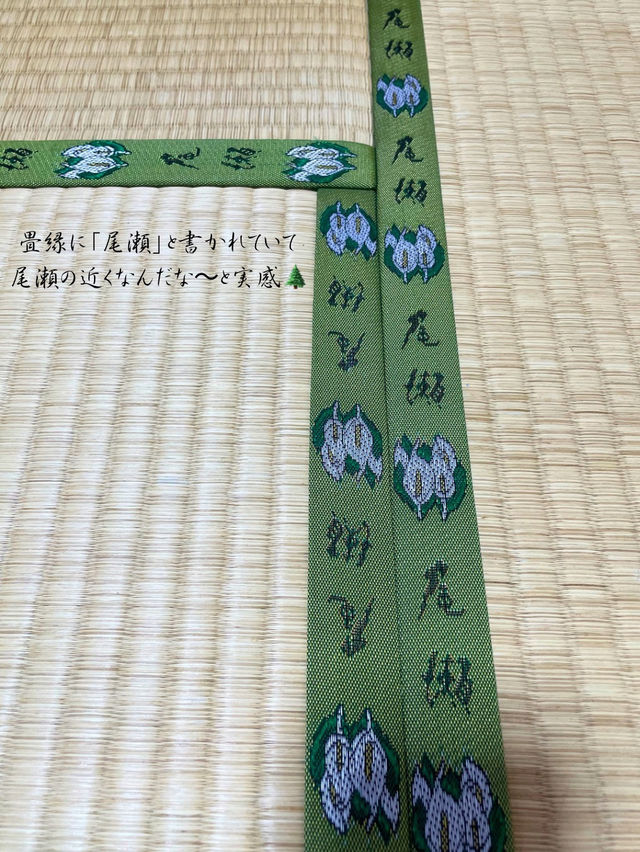 尾瀬
尾瀬
尾瀬
尾瀬
尾瀬
畳縁に「尾瀬」と書かれていて
尾瀬の近くなんだな〜と実感🌲
尾瀬
尾瀬